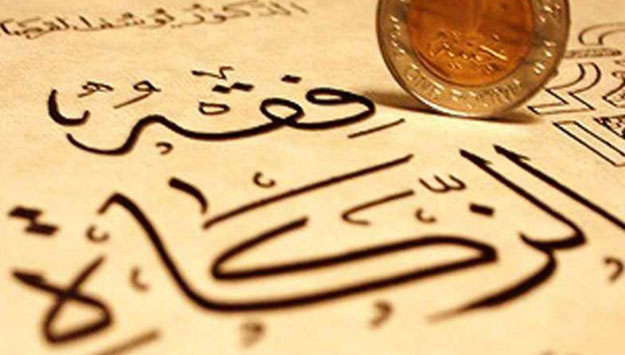 الدكتور يوسف القرضاوي
فقه
الزكاة
ONE POUND